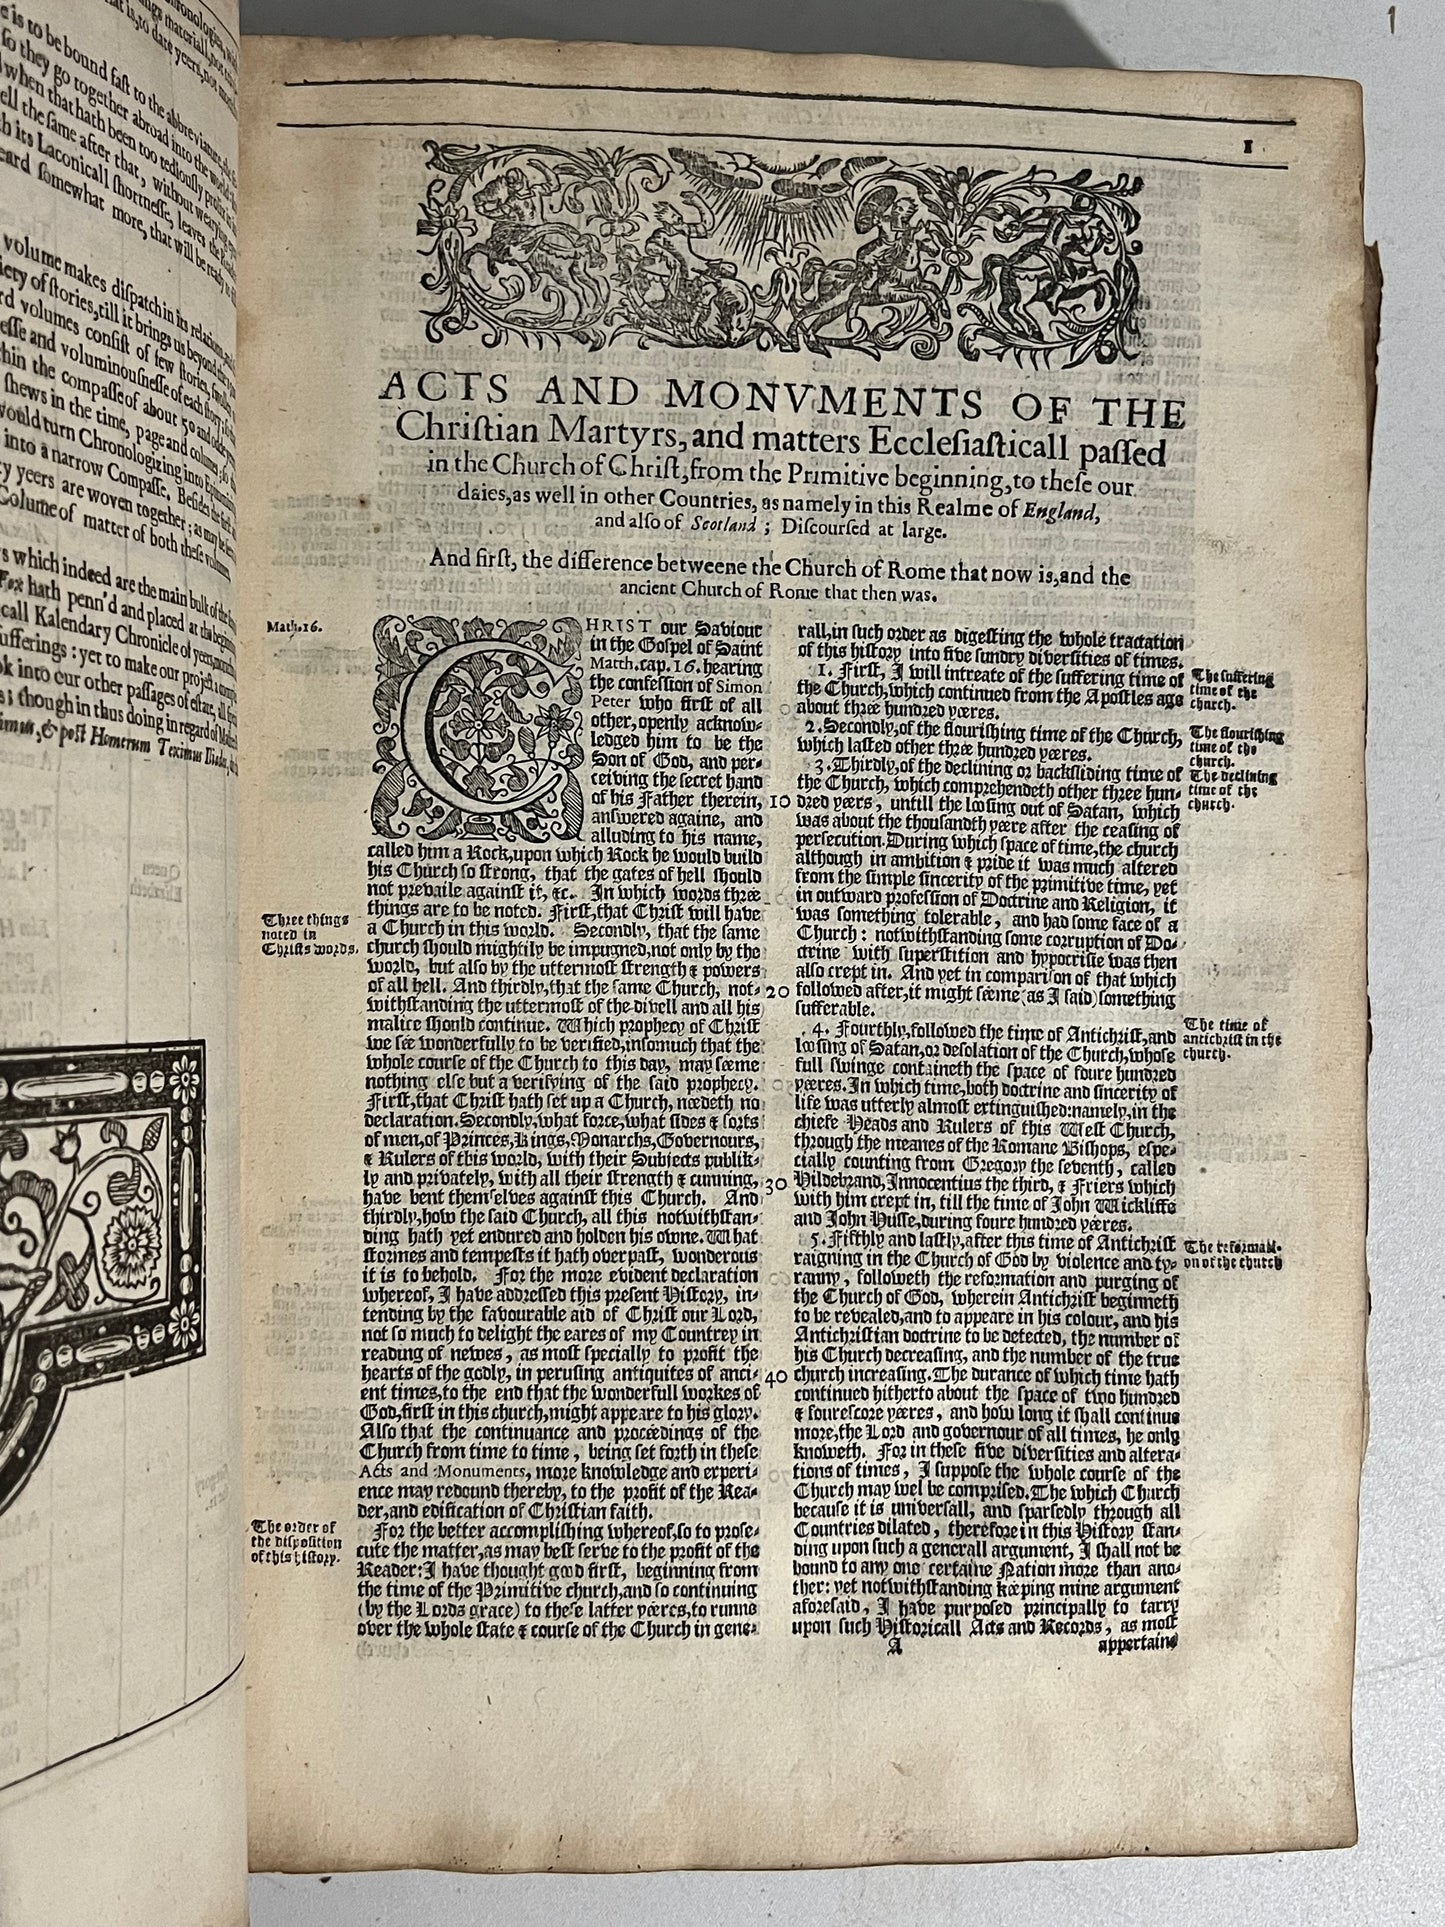 1
ACTS AND MONVMENTS OF THE
Chriſtian Martyrs, and matters Eccleſiaſticall paſſed
in the Church of Chriſt, from the Primitive beginning, to theſe our
daies, as well in other Countries, as namely in this Realme of England,
and alſo of Scotland ; Diſcourſed at large.
And firſt, the difference betweene the Church of Rome that now is, and the
ancient Church of Rome that then was.
Math. 16.
CHRIST our Saviour
in the Goſpel of Saint
Matth. cap. 16. hearing
the confeſſion of Simon
Peter who firſt of all
other, openly acknow-
ledged him to be the
Son of God, and per-
ceiving the ſecret hand
of his Father therein,
anſwered againe, and
alluding to his name,
called him a Rock, upon which Rock he would build
his Church ſo ſtrong, that the gates of hell ſhould
not prevaile againſt it, &c. In which words three
things are to be noted. Firſt, that Chriſt will have
a Church in this world. Secondly, that the ſame
church ſhould mightily be impugned, not only by the
world, but alſo by the uttermoſt ſtrength & powers
of all hell. And thirdly, that the ſame Church, not-
withſtanding the uttermoſt of the divell and all his
malice ſhould continue. Which prophecy of Chriſt
we ſee wonderfully to be verified, inſomuch that the
whole courſe of the Church to this day, may ſeeme
nothing elſe but a verifying of the ſaid prophecy.
Firſt, that Chriſt hath ſet up a Church, needeth no
declaration. Secondly, what force, what ſides & ſorts
of men, of Princes, Kings, Monarchs, Governours,
& Rulers of this world, with their Subjects publik-
ly and privately, with all their ſtrength & cunning,
have bent themſelves againſt this Church. And
thirdly, how the ſaid Church, all this notwithſtan-
ding hath yet endured and holden his owne. What
ſtormes and tempeſts it hath overpaſt, wonderous
it is to behold. For the more evident declaration
whereof, I have addreſſed this preſent Hiſtory, in-
tending by the favourable aid of Chriſt our Lord,
not ſo much to delight the eares of my Countrey in
reading of newes, as moſt ſpecially to profit the
hearts of the godly, in peruſing antiquites of anci-
ent times, to the end that the wonderfull workes of
God, firſt in this church, might appeare to his glory.
Alſo that the continuance and proceedings of the
Church from time to time, being ſet forth in theſe
Acts and Monuments, more knowledge and experi-
ence may redound thereby, to the profit of the Rea-
der, and edification of Chriſtian faith.
For the better accompliſhing whereof, ſo to proſe-
cute the matter, as may beſt ſerve to the profit of the
Reader: I have thought good firſt, beginning from
the time of the Primitive church, and ſo continuing
(by the Lords grace) to theſe latter yeeres, to runne
over the whole ſtate & courſe of the Church in gene-
Three things
noted in
Chriſts words.
The order of
the diſpoſition
of this hiſtory.
10
20
30
40
rall, in ſuch order as digeſting the whole tractation
of this hiſtory into five ſundry diverſities of times.
1. Firſt, I will intreate of the ſuffering time of
the Church, which continued from the Apoſtles age
about three hundred yeeres.
2. Secondly, of the flouriſhing time of the Church,
which laſted other three hundred yeeres.
3. Thirdly, of the declining or backſliding time of
the Church, which comprehendeth other three hun-
dred yeers, untill the looſing out of Satan, which
was about the thouſandth yeere after the ceaſing of
perſecution. During which ſpace of time, the church
although in ambition & pride it was much altered
from the ſimple ſincerity of the primitive time, yet
in outward profeſſion of Doctrine and Religion, it
was ſomething tolerable, and had ſome face of a
Church: notwithſtanding ſome corruption of Do-
ctrine with ſuperſtition and hypocriſie was then
alſo crept in. And yet in compariſon of that which
followed after, it might ſeeme (as I ſaid) ſomething
ſufferable.
4. Fourthly, followed the time of Antichriſt, and
looſing of Satan, or deſolation of the Church, whoſe
full ſwinge containeth the ſpace of foure hundred
yeeres. In which time, both doctrine and ſincerity of
life was utterly almoſt extinguiſhed: namely, in the
chiefe Heads and Rulers of this Weſt Church,
through the meanes of the Romane Biſhops, eſpe-
cially counting from Gregory the ſeventh, called
Hildebrand, Innocentius the third, & Friers which
with him crept in, till the time of John Wickliffe
and John Huſſe, during foure hundred yeeres.
5. Fifthly and laſtly, after this time of Antichriſt
raigning in the Church of God by violence and ty-
ranny, followeth the reformation and purging of
the Church of God, wherein Antichriſt beginneth
to be revealed, and to appeare in his colour, and his
Antichriſtian doctrine to be detected, the number of
his Church decreaſing, and the number of the true
church increaſing. The durance of which time hath
continued hitherto about the ſpace of two hundred
& foureſcore yeeres, and how long it ſhall continue
more, the Lord and governour of all times, he only
knoweth. For in theſe five diverſities and altera-
tions of times, I ſuppoſe the whole courſe of the
Church may wel be compriſed. The which Church
becauſe it is univerſall, and ſparſedly through all
Countries dilated, therefore in this Hiſtory ſtan-
ding upon ſuch a generall argument, I ſhall not be
bound to any one certaine Nation more than ano-
ther: yet notwithſtanding keeping mine argument
aforeſaid, I have purpoſed principally to tarry
upon ſuch Hiſtoricall Acts and Records, as moſt
A
appertaine
The ſuffering
time of the
church.
The flouriſhing
time of the
church.
The declining
time of the
church.
The time of
antichriſt in the
church.
The reformati-
on of the church